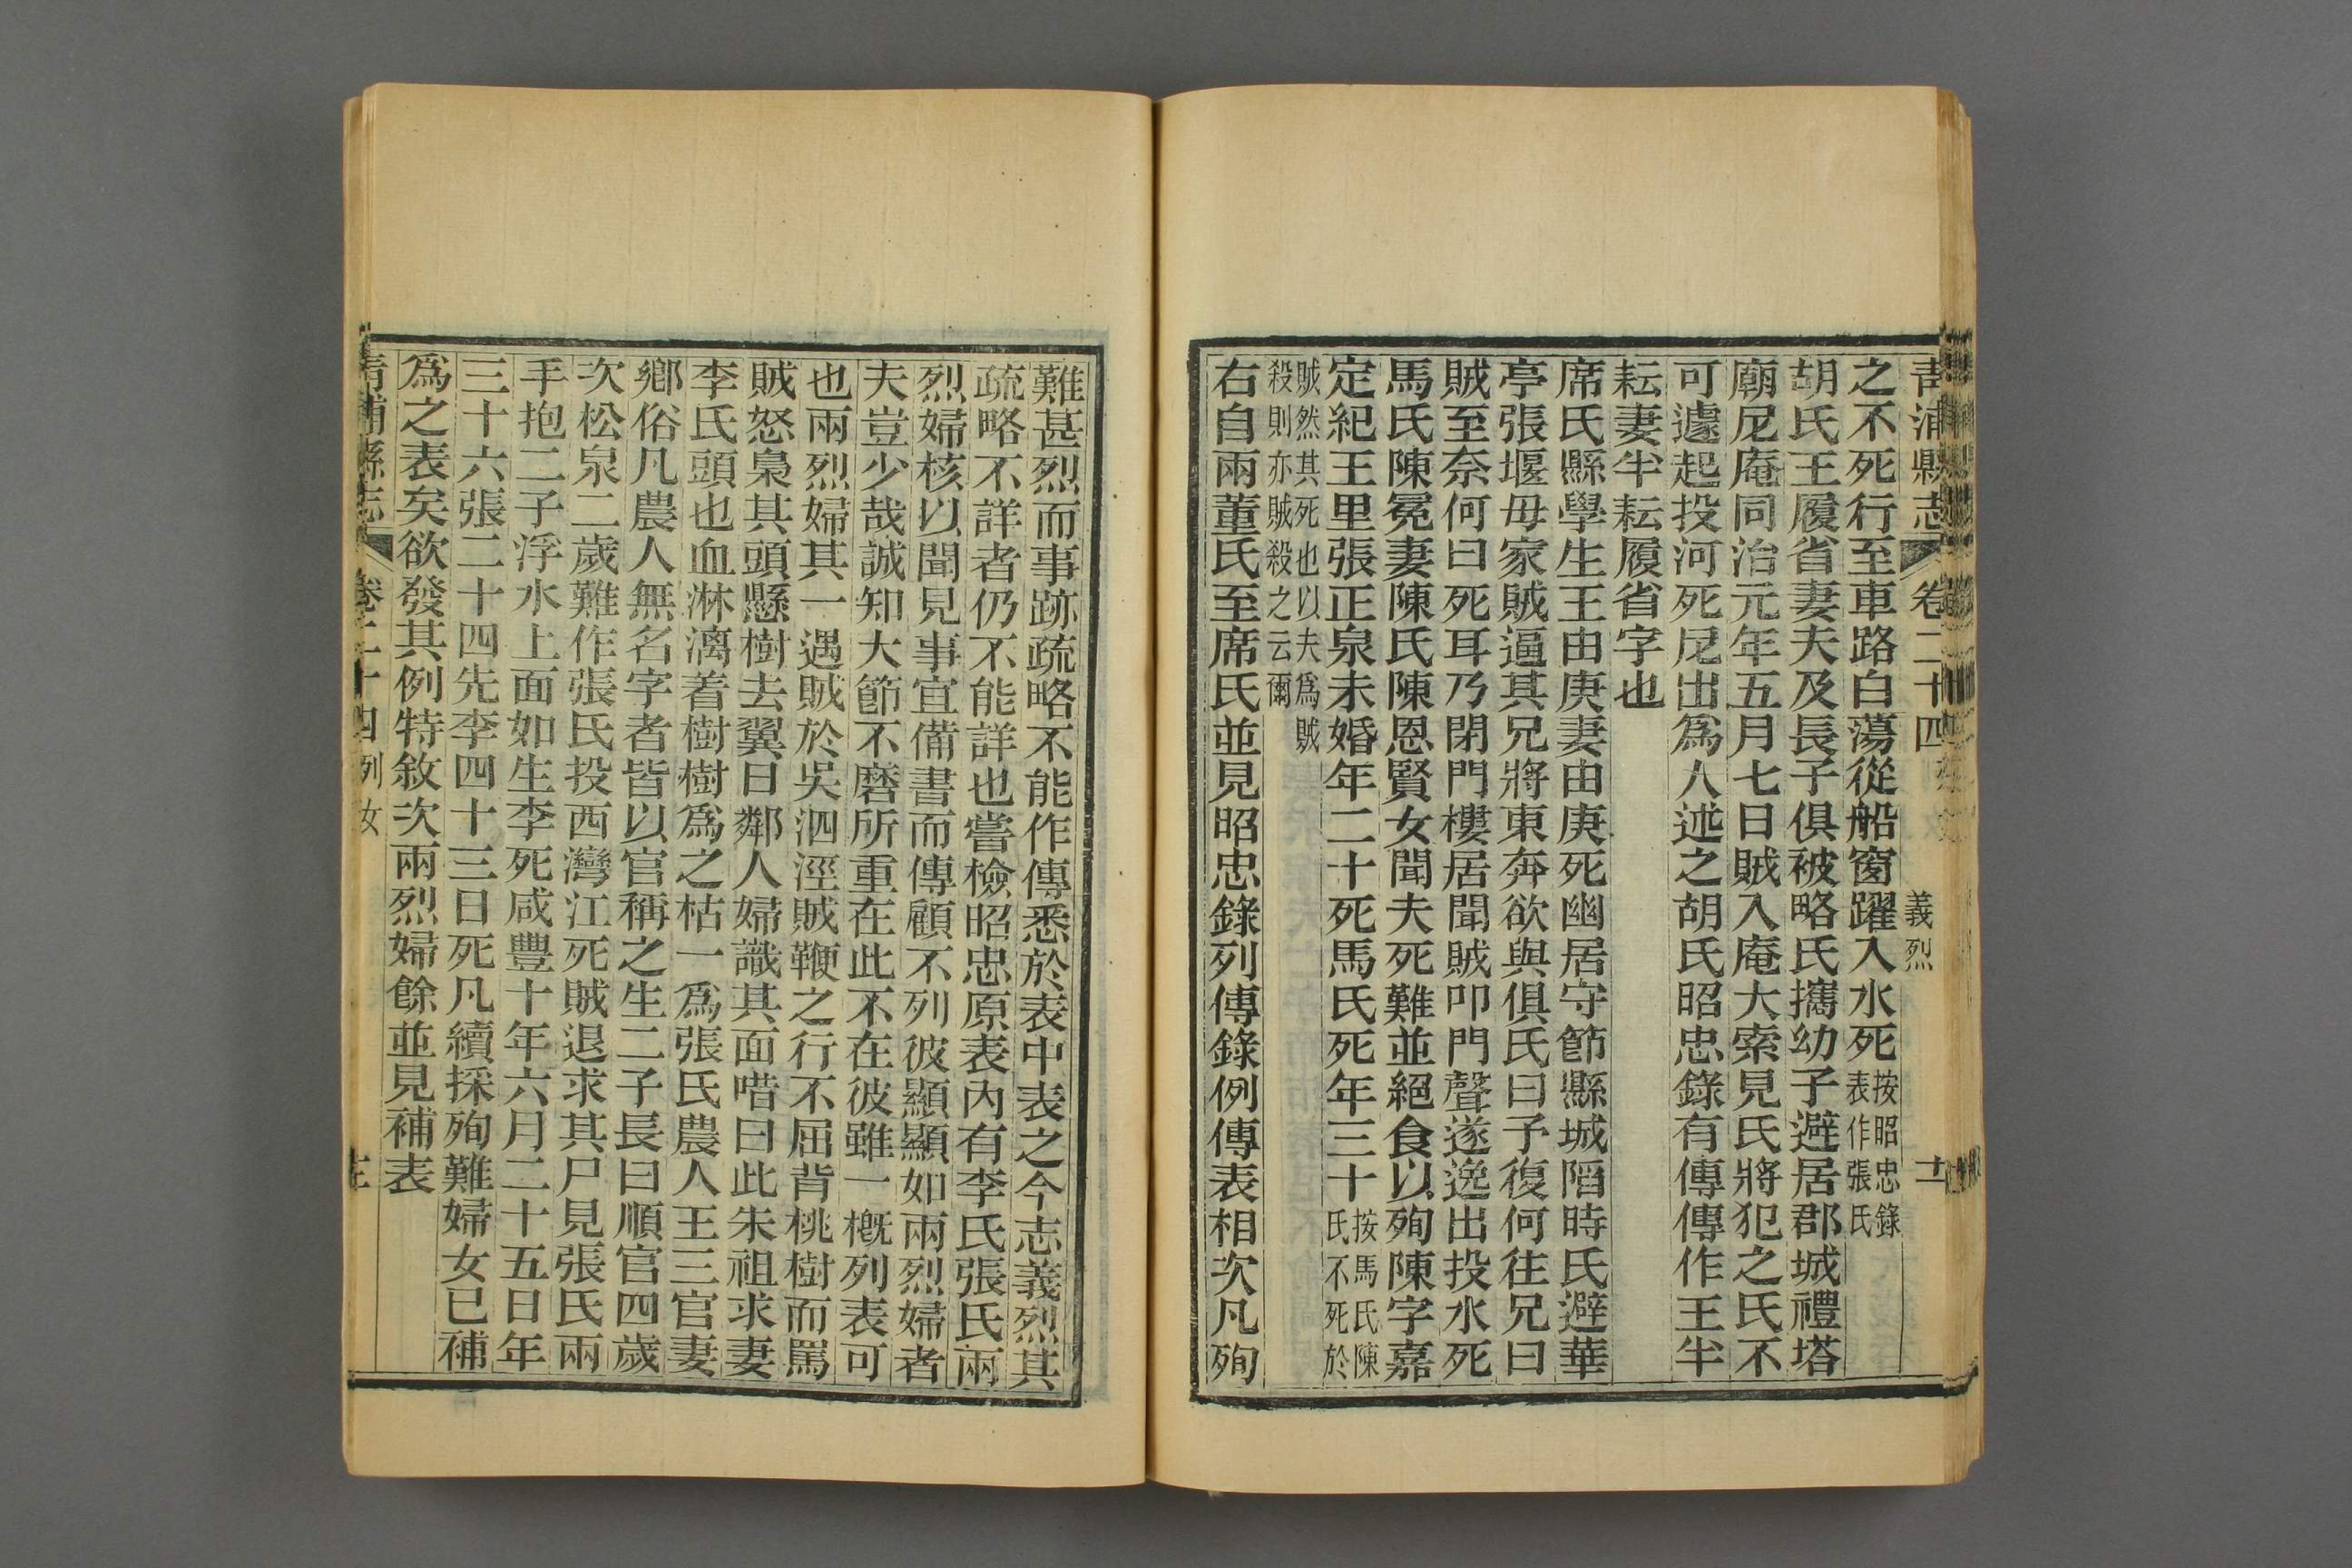 青浦縣志 卷二十四 義烈 十一
之不死行至車路白蕩從船窗躍入水死按昭忠錄表作張氏
胡氏王履省妻夫及長子俱被略氏攜幼子避居郡城禮塔
廟尼庵同治元年五月七日賊入庵大索見氏將犯之氏不
可遽起投河死尼出爲人述之胡氏昭忠錄有傳傳作王半
耘妻半耘履省字也
席氏縣學生王由庚妻由庚死幽居守節縣城陷時氏避華
亭張堰母家賊逼其兄將東奔欲與俱氏曰予復何往兄曰
賊至奈何曰死耳乃閉門樓居聞賊叩門聲遂逸出投水死
馬氏陳冕妻陳氏陳恩賢女聞夫死難並絕食以殉陳字嘉
定紀王里張正泉未婚年二十死馬氏死年三十按馬氏陳氏不死於
賊然其死也以夫爲賊殺則亦賊殺之云爾
右自兩董氏至席氏並見昭忠錄列傳錄例傳表相次凡殉
難甚烈而事跡疏略不能作傳悉於表中表之今志義烈其
疏略不詳者仍不能詳也嘗檢昭忠原表內有李氏張氏兩
烈婦核以聞見事宜備書而傳顧不列彼顯顯如兩烈婦者
夫豈少哉誠知大節不磨所重在此不在彼雖一槪列表可
也兩烈婦其一遇賊於吳泗涇賊鞭之行不屈背桃樹而罵
賊怒梟其頭懸樹去翼日鄰人婦識其面唶曰此朱祖求妻
李氏頭也血淋漓着樹樹爲之枯一爲張氏農人王三官妻
鄉俗凡農人無名字者皆以官稱之生二子長曰順官四歲
次松泉二歲難作張氏投西灣江死賊退求其尸見張氏兩
手抱二子浮水上面如生李死咸豐十年六月二十五日年
三十六張二十四先李四十三日死凡續採殉難婦女已補
爲之表矣欲發其例特敘次兩烈婦餘並見補表
青浦縣志 卷二十四 列女